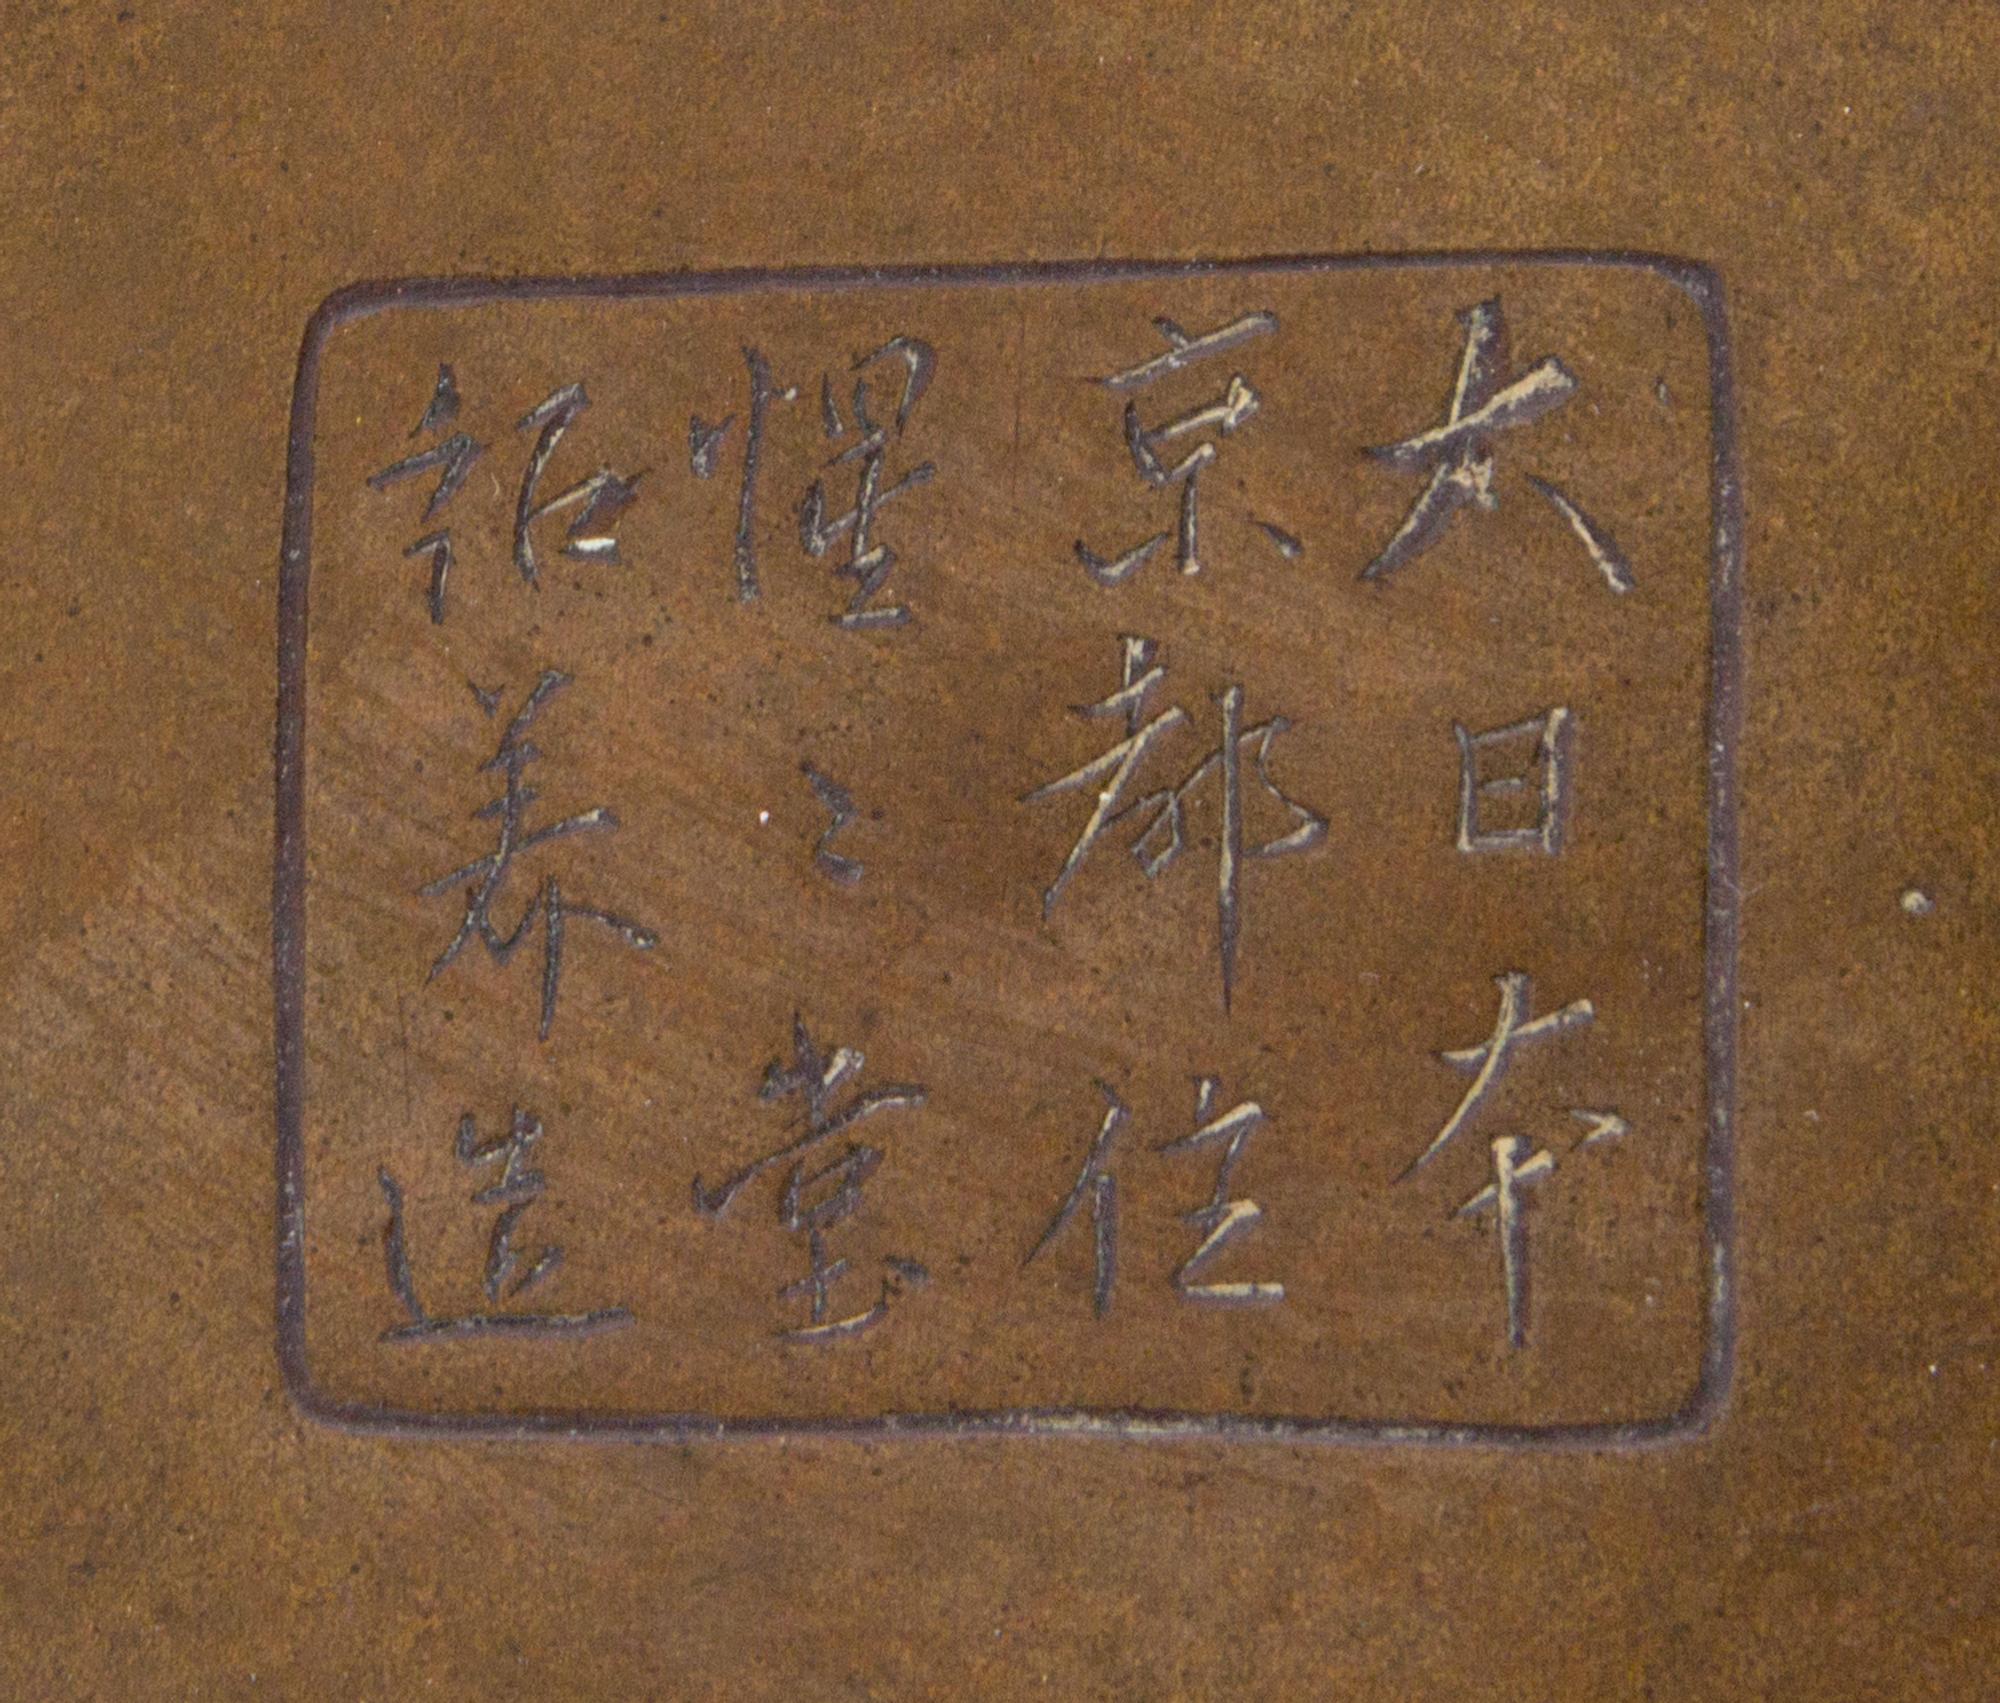 大日本
京都住
惺々堂
詔美造